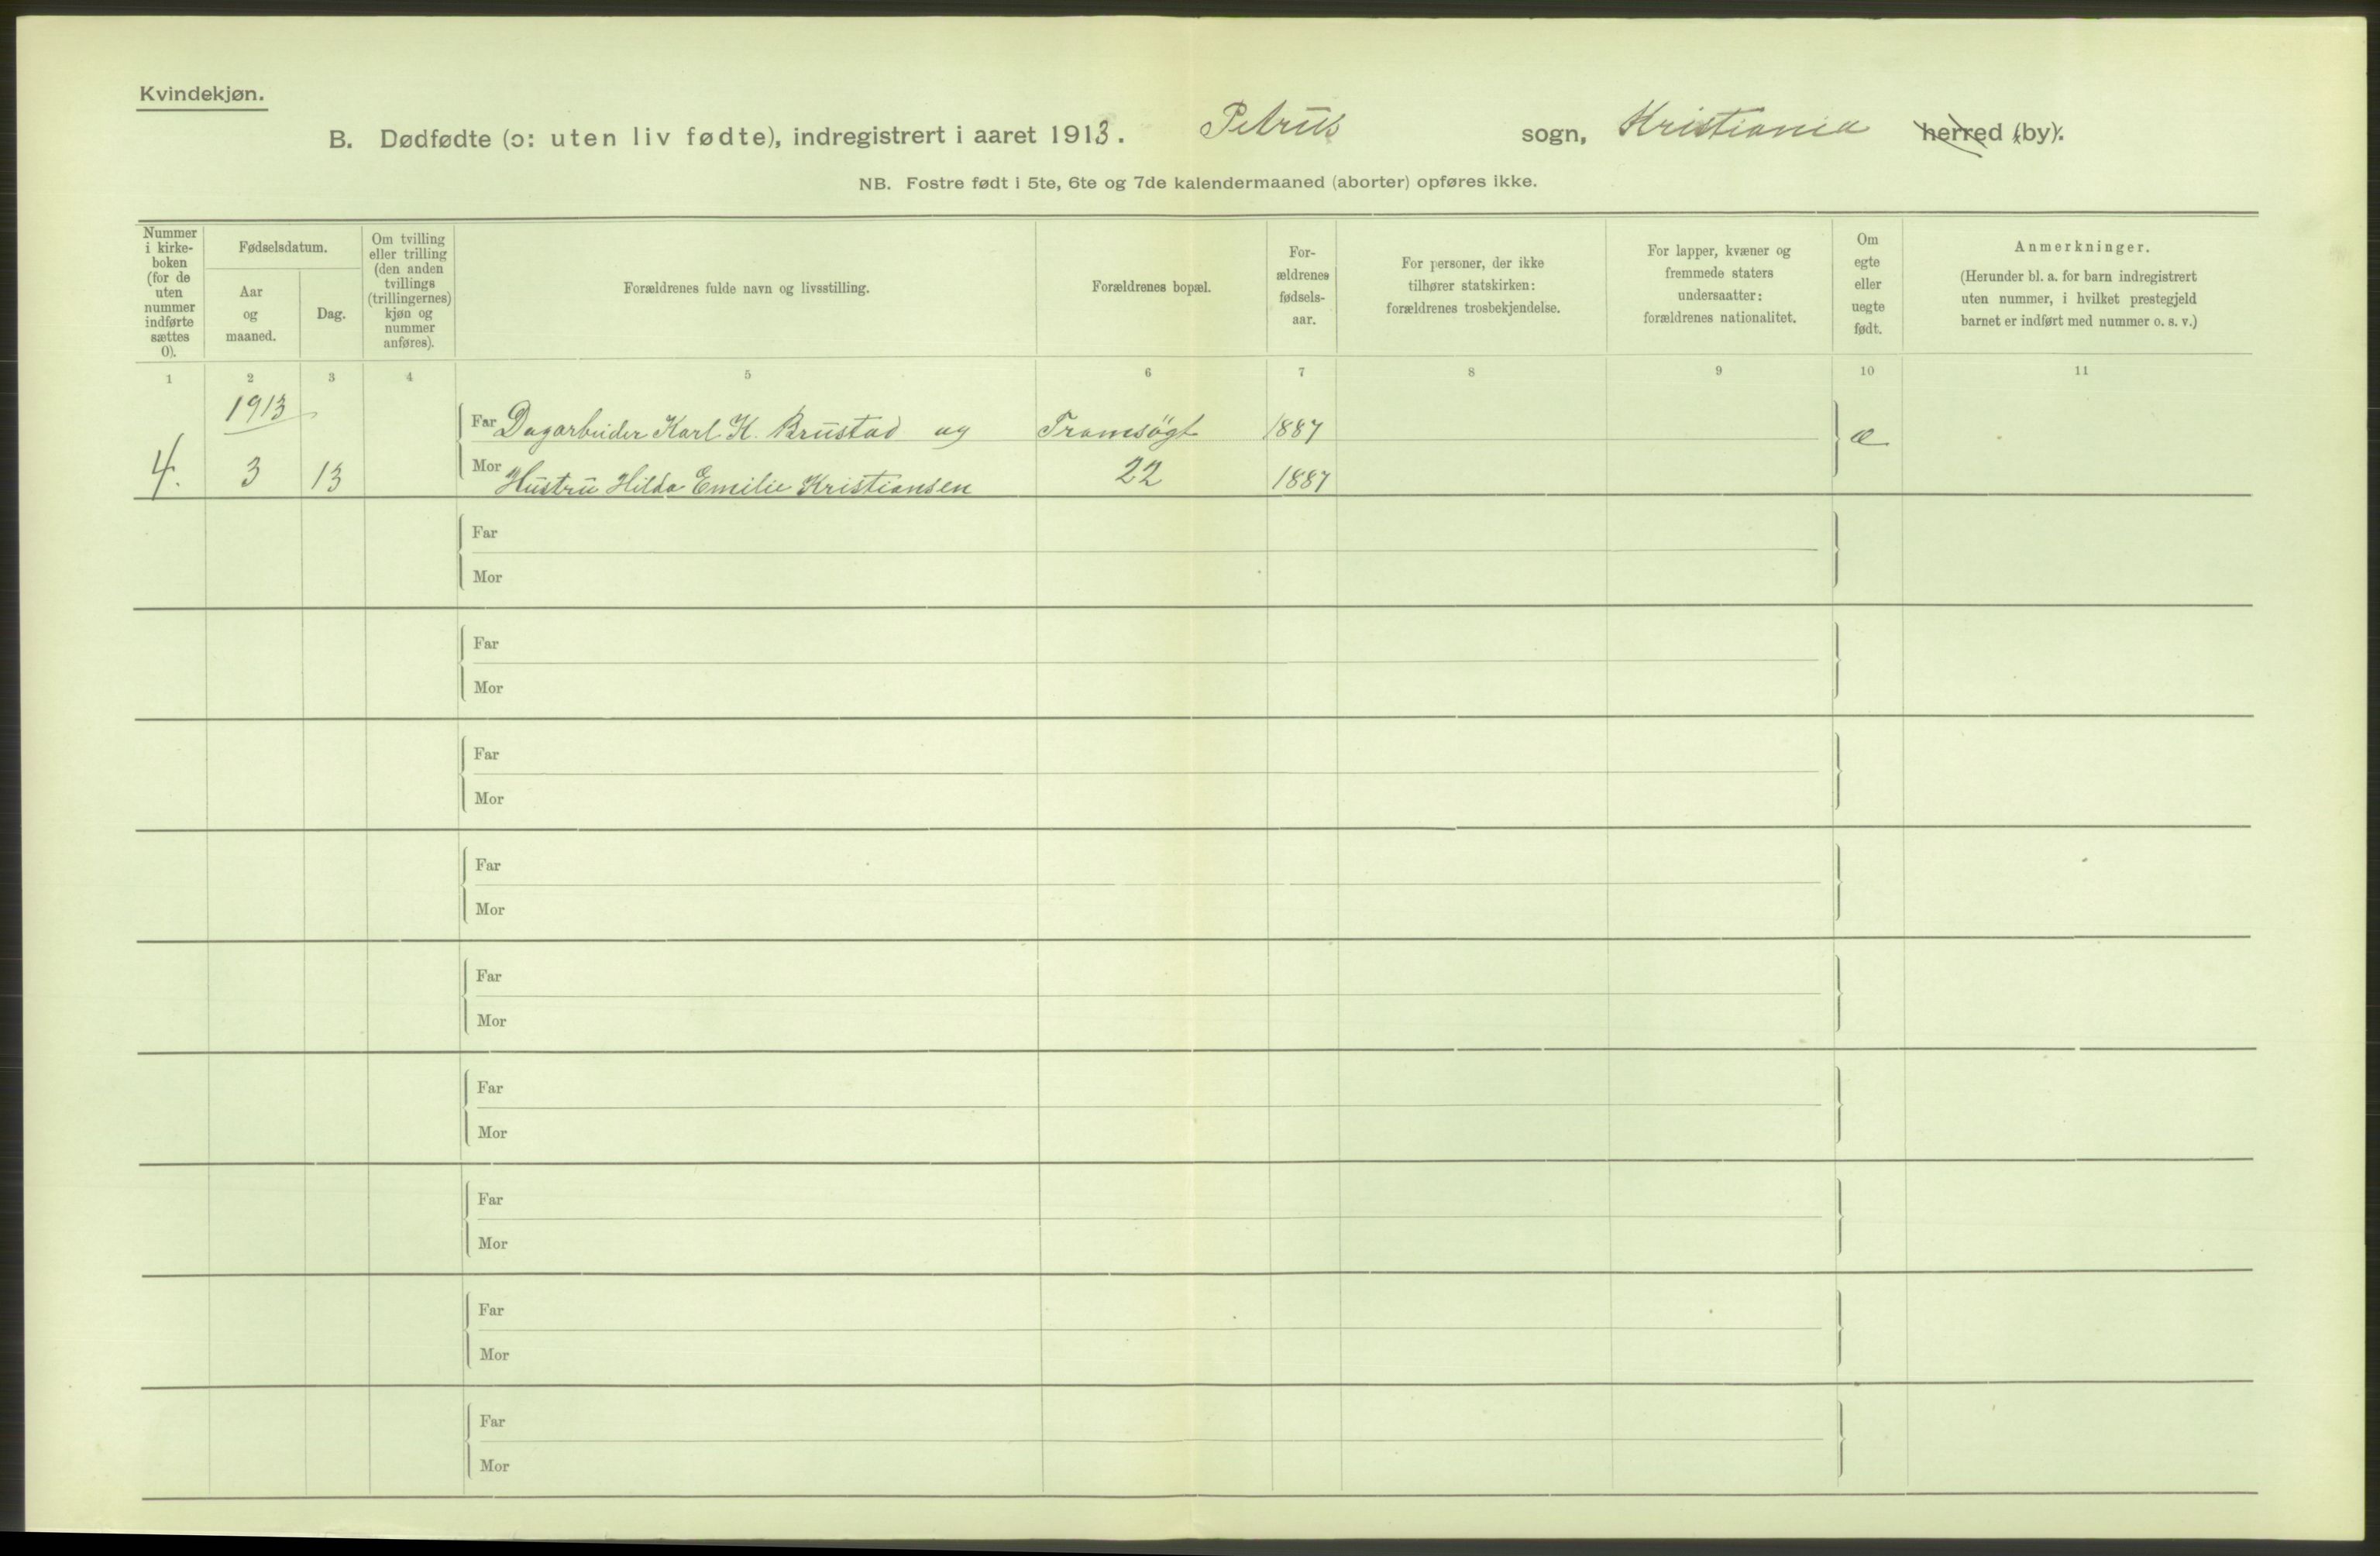 Kvindekjøn.
B. Dødfødte (ɔ: uten liv fødte), indregistrert i aaret 1913. Petrus sogn, Kristiania herred (by).
NB. Fostre født i 5te, 6te og 7de kalendermaaned (aborter) opføres ikke.
Nummer
i kirke-
boken
(for de
uten
nummer
indførte
sættes
0).
Fødselsdatum.
Aar
og
maaned.
Dag.
Om tvilling
eller trilling
(den anden
tvillings
(trillingernes)
kjøn og
nummer
anføres).
Forældrenes fulde navn og livsstilling.
Forældrenes bopæl.
For-
ældrenes
fødsels-
aar.
For personer, der ikke
tilhører statskirken:
forældrenes trosbekjendelse.
For lapper, kvæner og
fremmede staters
undersaatter:
forældrenes nationalitet.
Om
egte
eller
uegte
født.
Anmerkninger.
(Herunder bl. a. for barn indregistrert
uten nummer, i hvilket prestegjeld
barnet er indført med nummer o. s. v.)
1 2 3 4 5 6 7 8 9 10 11
1913
Far Dagarbeider Karl K. Brustad og Tromsøgt 1887 æ
4. 3 13 Mor Hustru Hilda Emilie Kristiansen 22 1887
Far
Mor
Far
Mor
Far
Mor
Far
Mor
Far
Mor
Far
Mor
Far
Mor
Far
Mor
Far
Mor